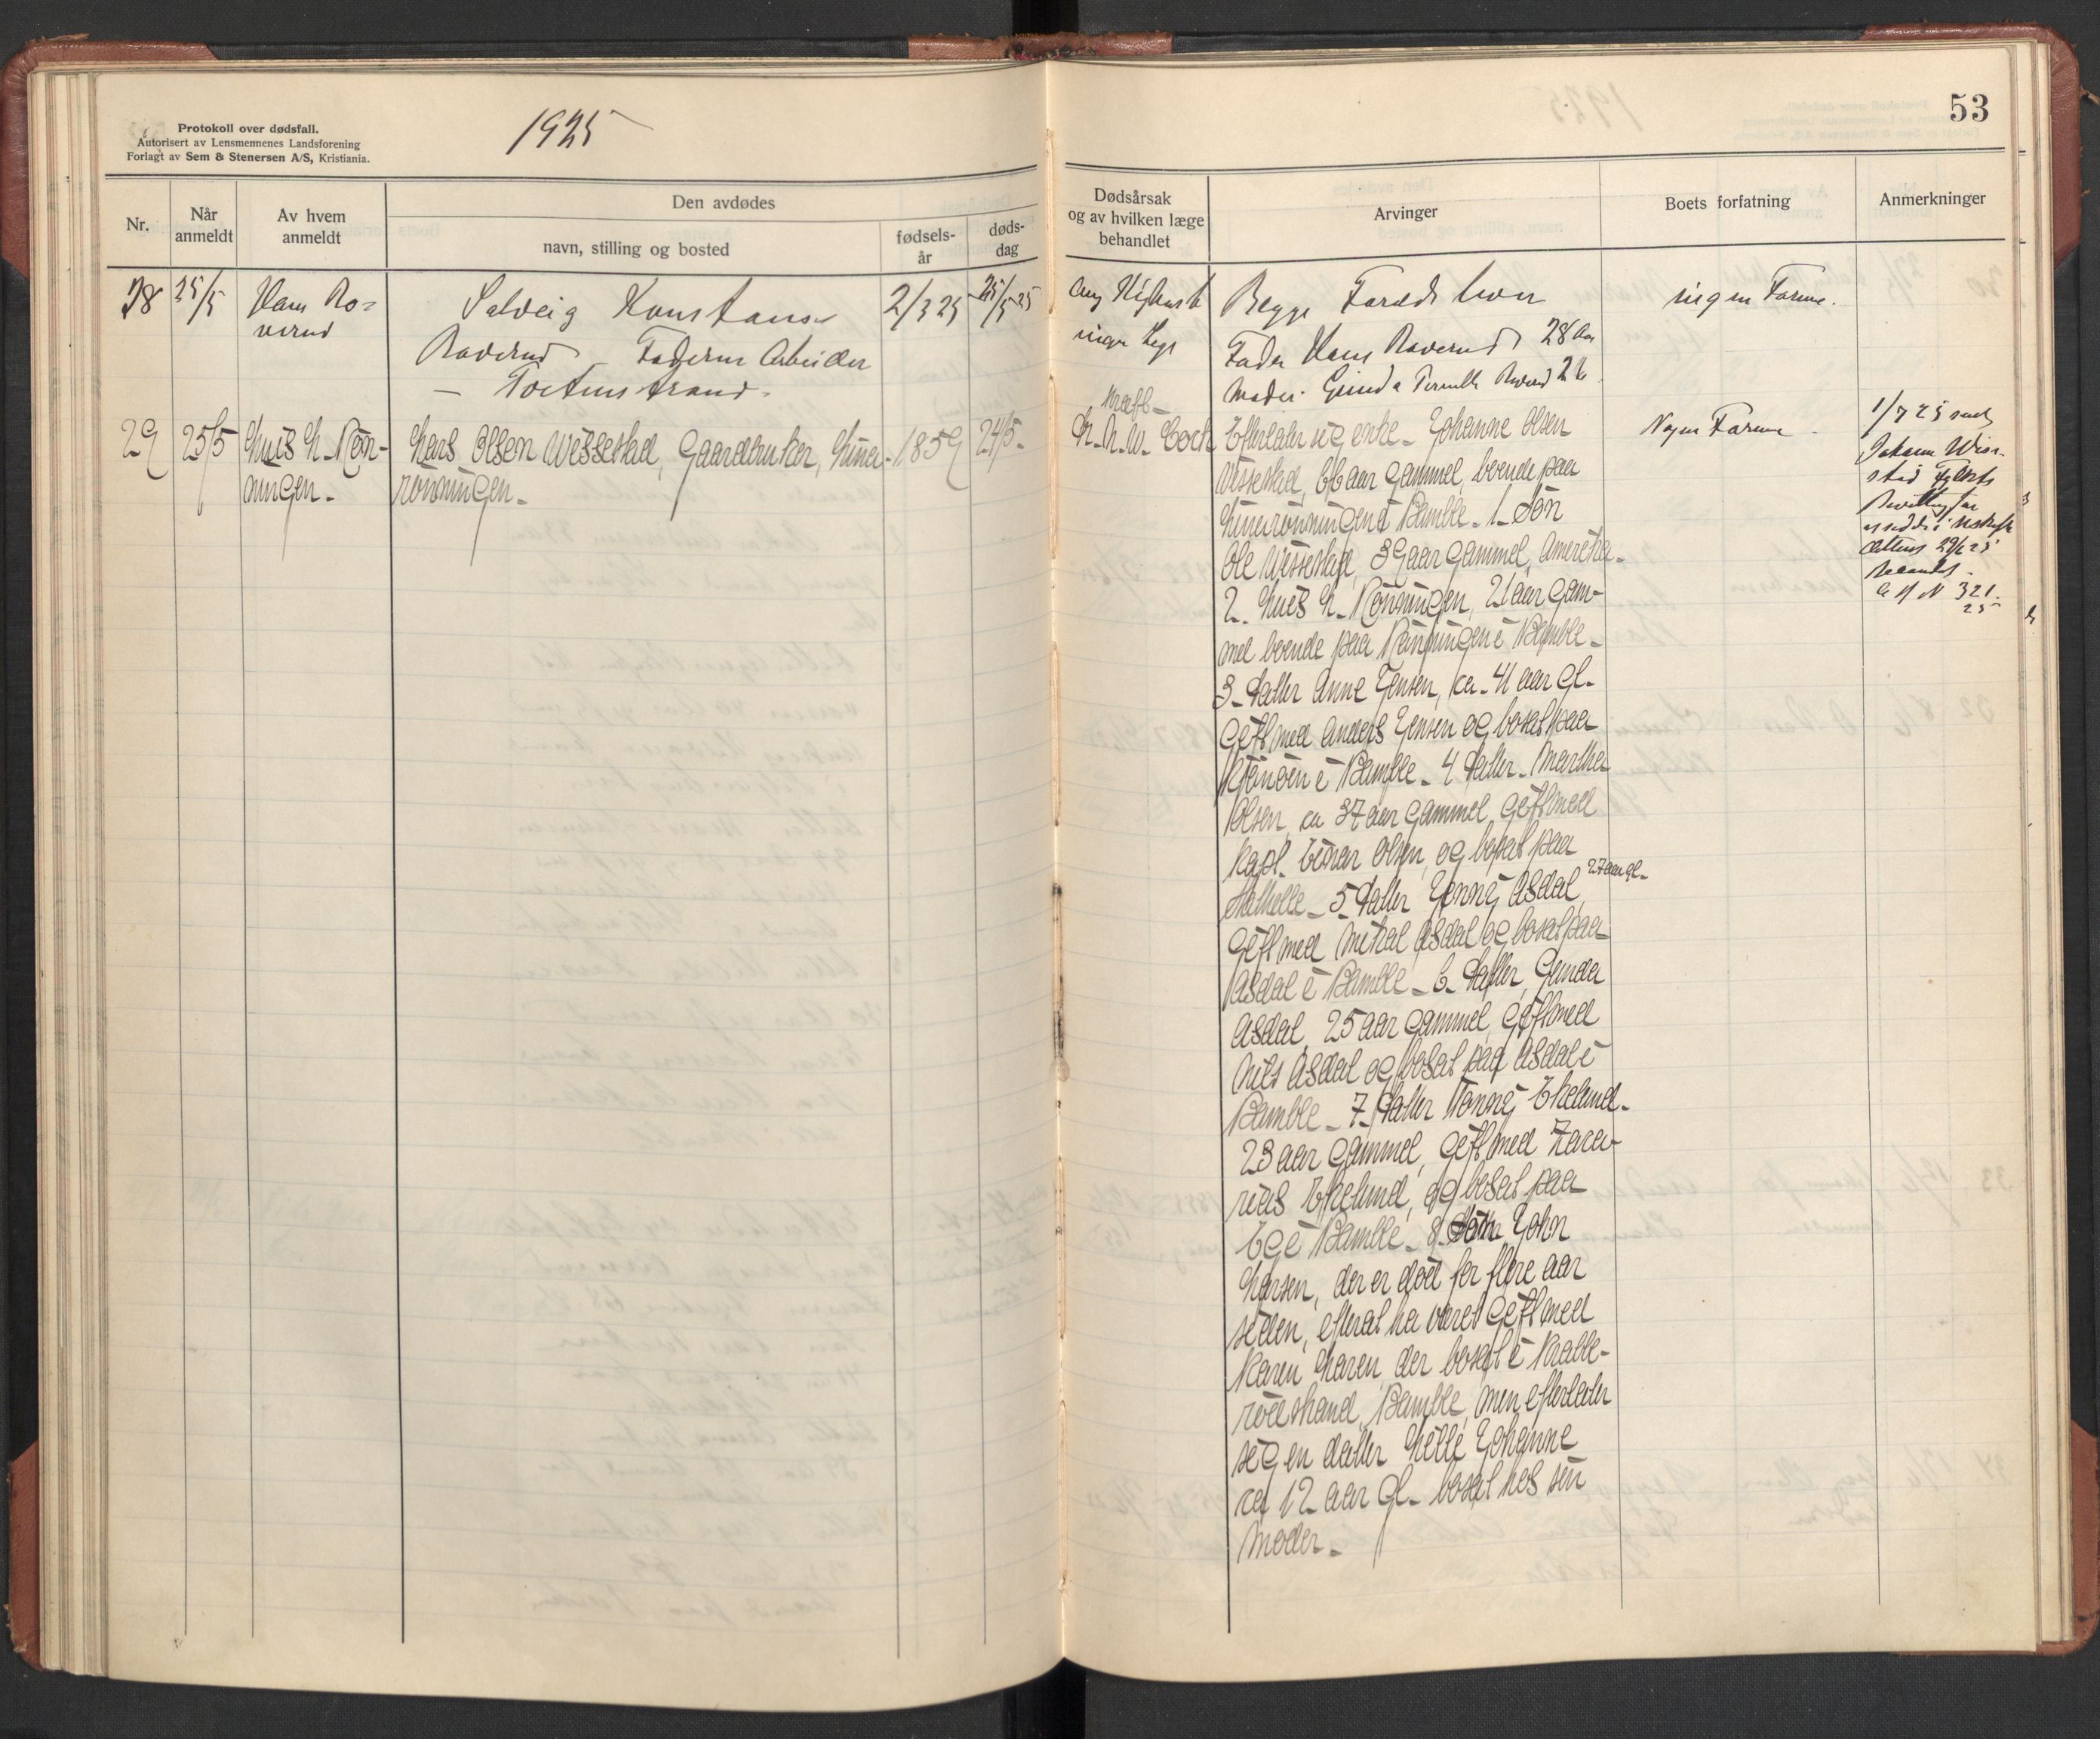 Protokoll over dødsfall.
Autorisert av Lensmennenes Landsforening
Forlagt av Sem & Stenersen A/S, Kristiania.
1925
53
Nr.
Når anmeldt
Av hvem anmeldt
Den avdødes
navn, stilling og bosted
fødsels-
år
døds-
dag
Dødsårsak
og av hvilken læge
behandlet
Arvinger
Boets forfatning
Anmerkninger
28 25/5 Hans Ro=
verud
Solveig Konstanse
Roverud Faderen Arbeider
2/3 25 25/5 25
ingen Lege
Begge Foreldre lever
Fader Hans Roverud 28 Aar
Moder
ingen Formue.
29 25/5 Lars L. Røn-
ningen.
Lars Olsen Wissestad, Gaardbruker,
rønningen.
1859 24/5
Kræft
Efterlater sig enke. Johanne Olsen
Wissestad, 66 aar gammel, boende paa
rønningen i Bamble. 1. Søn
Ole Wissestad, 39 aar gammel, Amerika.
2. L. Rønningen, 21 aar gam-
mel boende paa Rønningen i Bamble.
3. datter Anne Jensen, ca. 41 aar gl.
gift med Anders Jensen og bosat paa
i Bamble. 4 datter. Martha
Olsen, ca 37 aar gammel, gift med
kapt. Einar Olsen, og bosat paa
Stathelle. 5. datter Jenny Asdal, 27 aar gl.
gift med Asdal og bosat paa
Asdal i Bamble. 6. datter, Gunda
Asdal, 25 aar gammel, gift med
Nils Asdal og bosat paa Asdal i
Bamble. 7. datter Ekelund.
23 aar gammel, gift med Zaca-
rias Ekelund, og bosat paa
i Bamble. 8. Søn John
Larsen, der er død for flere aar
siden, efter at ha været gift med
Karen Larsen, der bosat i Krabbe-
rødstrand, Bamble, men efterlater
sig en datter Johanne
ca 12 aar gl. bosat hos sin
moder.
Nogen Formue
1/7 25
Johanne Wis-
stad
29/6 25
321
25